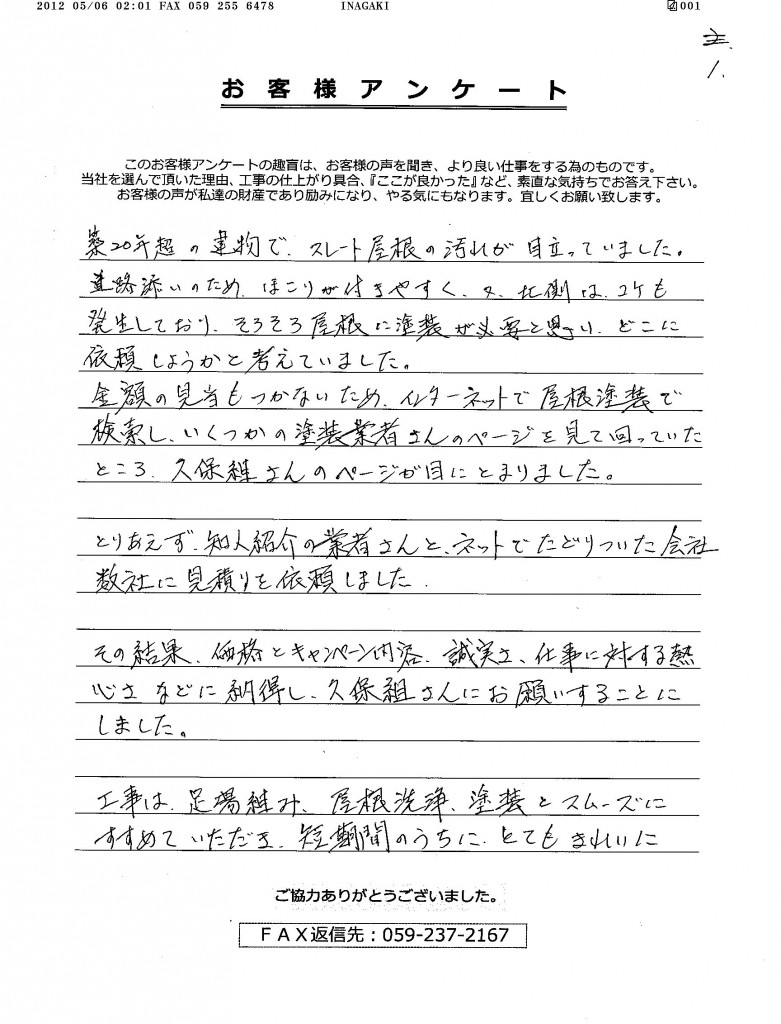 2012 05/06 02:01 FAX 059 255 6478 INAGAKI 001
1.
お客様アンケート
このお客様アンケートの趣旨は、お客様の声を聞き、より良い仕事をする為のものです。
当社を選んで頂いた理由、工事の仕上がり具合、『ここが良かった』など、素直な気持ちでお答え下さい。
お客様の声が私達の財産であり励みになり、やる気にもなります。宜しくお願い致します。
築20年超の建物で、スレート屋根の汚れが目立っていました。
道路添いのため、ほこりが付きやすく、又、北側は、コケも
発生しており、そろそろ屋根に塗装が必要と思い、どこに
依頼しようかと考えていました。
金額の見当もつかないため、インターネットで屋根塗装で
検索し、いくつかの塗装業者さんのページを見て回っていた
ところ、久保組さんのページが目にとまりました。
とりあえず、知人紹介の業者さんと、ネットでたどりついた会社
数社に見積りを依頼しました.
その結果、価格とキャンペーン内容、誠実さ、仕事に対する熱
心さなどに納得し、久保組さんにお願いすることに
しました。
工事は、足場組み、屋根洗浄、塗装とスムーズに
すすめていただき、短期間のうちに、とてもきれいに
ご協力ありがとうございました。
FAX返信先：059-237-2167